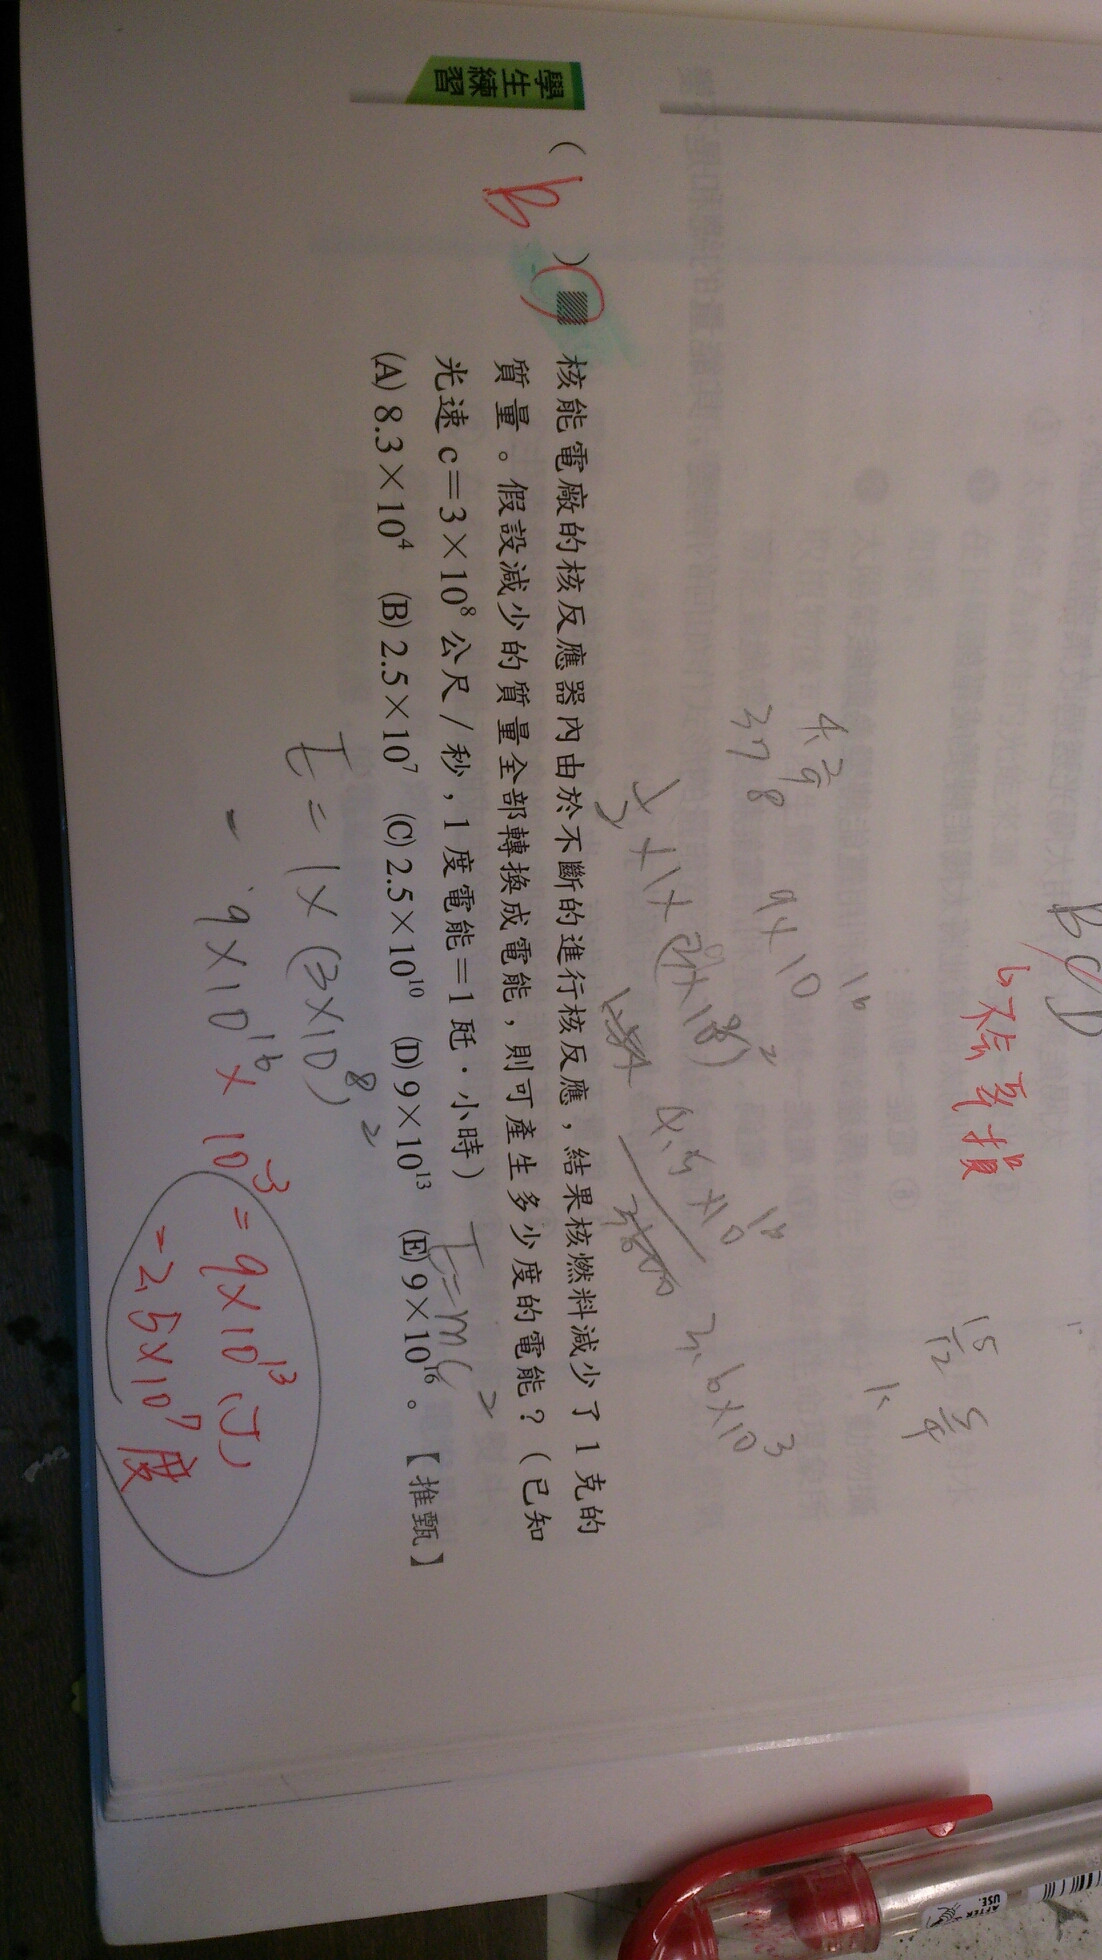 B C D
↳ 不会虧損
15
12
5
4
1.
4.
2
9
3 7 8
9×10¹⁶
4.5×10¹⁶
3600
3.6×10³
學生
練習
( B )
核能電廠的核反應器內由於不斷的進行核反應,結果核燃料減少了1克的
質量。假設減少的質量全部轉換成電能,則可產生多少度的電能?(已知
光速 c=3×10⁸ 公尺/秒,1度電能=1瓩·小時)
E=mc²
(A) 8.3×10⁴ (B) 2.5×10⁷ (C) 2.5×10¹⁰ (D) 9×10¹³ (E) 9×10¹⁶。【推甄】
E=1×(3×10⁸)²
= 9×10¹⁶×10⁻³=9×10¹³(J)
=2.5×10⁷度
AFTER
USE.